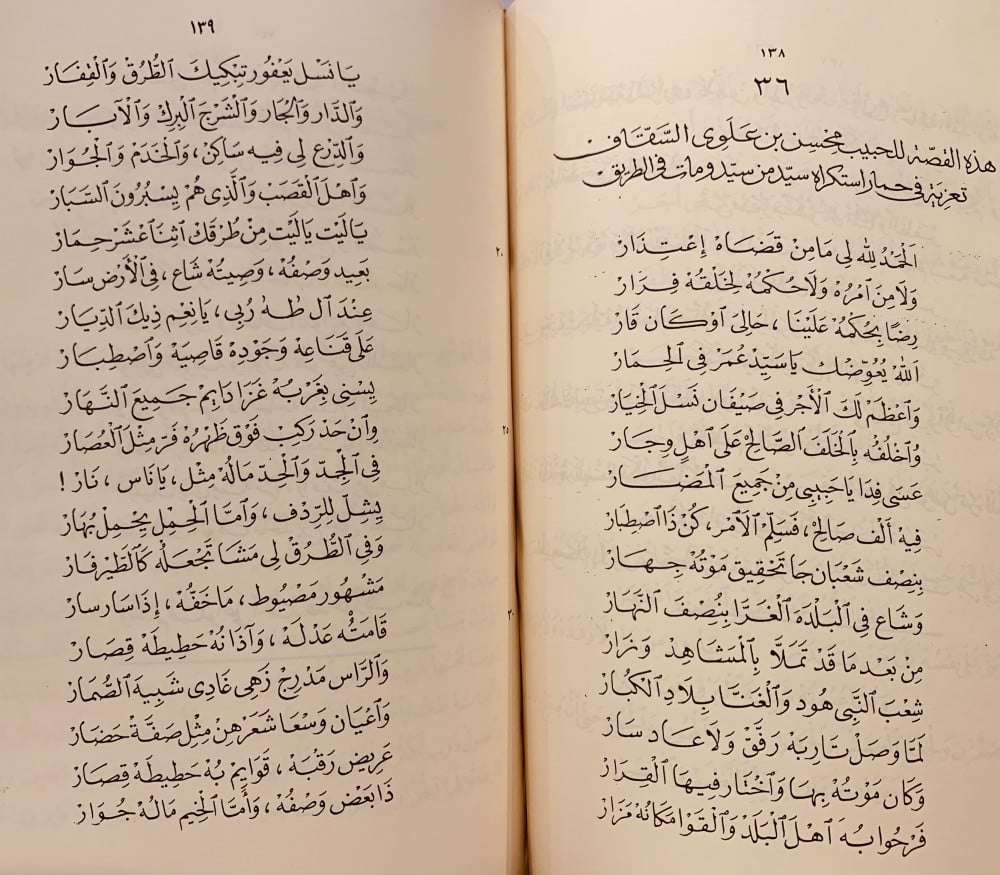 ١٣٨
٣٦
هذه القصّة للحبيب محْسن بن عَلَوى السَّقّاف
تعزية فى حمار استكراه سيّد من سيّد ومات فى الطريق
اَلْحَمْدُ لِلّٰه لِى مَا مِنْ قَضَاهْ إِعْتِذَارْ
وَلَا مِنَ امْرُهْ وَلَا حُكْمُهْ لِخَلْقُهْ فِرَارْ
رِضًا بِحُكْمُهْ عَلَيْنَا ، حَالِىَ اوْ كَان قَارْ
اَللّٰه يُعَوِّضْك يَا سَيِّدْ عُمَرْ فِى الْحِمَارْ
وَاعْظَمْ لَكَ الْأَجْر فِى صَيْفَان نَسْل الْخِيَارْ
وُاخْلُفُهْ بِالْخَلَفَ الصَّالِحْ عَلَى اَهْلٍ وِجَارْ
عَسَى فِدَا يَا حَبِيبِى مِنْ جَمِيعَ الْمَضَارْ
فِيهْ اَلْف صَالِحْ ، فَسَلِّمَ الْاَمْر ، كُنْ ذَا اصْطِبَارْ
بِنِصْف شَعْبَان جَا تَحْقِيق مَوْتُهْ جِهَارْ
وَشَاع فِى الْبَلْدَهَ الْغَرَّا بِنِصْفَ النَّهَارْ
مِنْ بَعْد مَا قَدْ تَمَلَّا بِالْمَشَاهِدْ وَزَارْ
شِعْبَ النَّبِى هُود وَالْغَنَّا بِلَادِ الْكُبَارْ
لَمَّا وَصَلْ تَارِبَهْ رَفَّقْ وَلَا عَاد سَارْ
وَكَان مَوْتُهْ بِهَا وَاخْتَار فِيهَا الْقِرَارْ
فَرْحُوا بُهَ اهْلَ الْبَلَدْ وَالْقَوا مَكَانُهْ مَزَارْ
١٣٩
يَا نَسْل يَعْفُور تِبْكِيكَ الطُّرُقْ وَالْقِفَارْ
وَالدَّار وَالْجَار وَالشَّرْجَ الْبِرَكْ وَالْآبَارْ
وَالدِّرْع لِى فِيه سَاكِنْ ، وَالْخَدَمْ وَالْجِوَارْ
وَاهْلَ الْقَصَبْ وَالَّذِى هُمْ يِسْبُرُونَ السَّبَارْ
يَا لَيْت يَا لَيْت مِنْ طُرْقَكْ اثْنَا عْشَرْ حِمَارْ
٢٠
بَعِيد وَصْفُهْ ، وَصِيتُهْ شَاع ، فِى الْأَرْض سَارْ
عِنْدَ آل طٰهٰ رُبِى ، يَا نِعِم ذِيكَ الدِّيَارْ
عَلَى قَنَاعِهْ وَجَوْدِهْ قَاصِيِهْ وَاصْطِبَارْ
يِسْنِى بِغَرْبِهْ غَزَا دَايِمْ جَمِيعَ النَّهَارْ
وِانْ حَدْ رَكِبْ فَوْق ظَهْرُهْ فَرّ مِثْلَ الْعُصَارْ
٢٥
فِى الْجِدّ وَالْحِدّ مَا لُهْ مِثْل ، يَا نَاس ، نَارْ !
يِشِلّ لِلرِّدْف ، وَامَّا الْحِمْل يِحْمِلْ بُهَارْ
وَفِى الطُّرُقْ لِى مَشَا تَجْعَلُهْ كَالطَّيْر فَارْ
مَشْهُور مَصْبُوط ، مَاخَفُّهْ ، إِذَا سَار سارْ
قَامَتُهْ عَدْلَهْ ، وَآذَانُهْ حَطِيطَهْ قِصَارْ
٣٠
وَالرَّاس مَدْرِجْ زَهِى غَادِى شَبِيهَ الصُّمَارْ
وَاعْيَان وَسْعَا شَعَرْهِنْ مِثْل صَفَّةْ حَضَارْ
عَرِيض رَقْبَهْ ، قَوَايِمْ بُهْ حَطِيطَهْ قِصَارْ
ذَا بَعْض وَصْفُهْ ، وَأَمَّا الْخِيم مَا لُهْ جُوَارْ